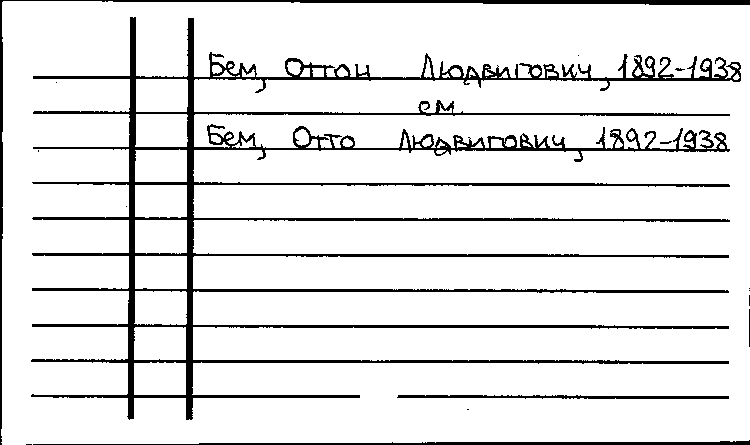 Бем, Оттон Людвигович, 1892-1938
см.
Бем, Отто Людвигович, 1892-1938